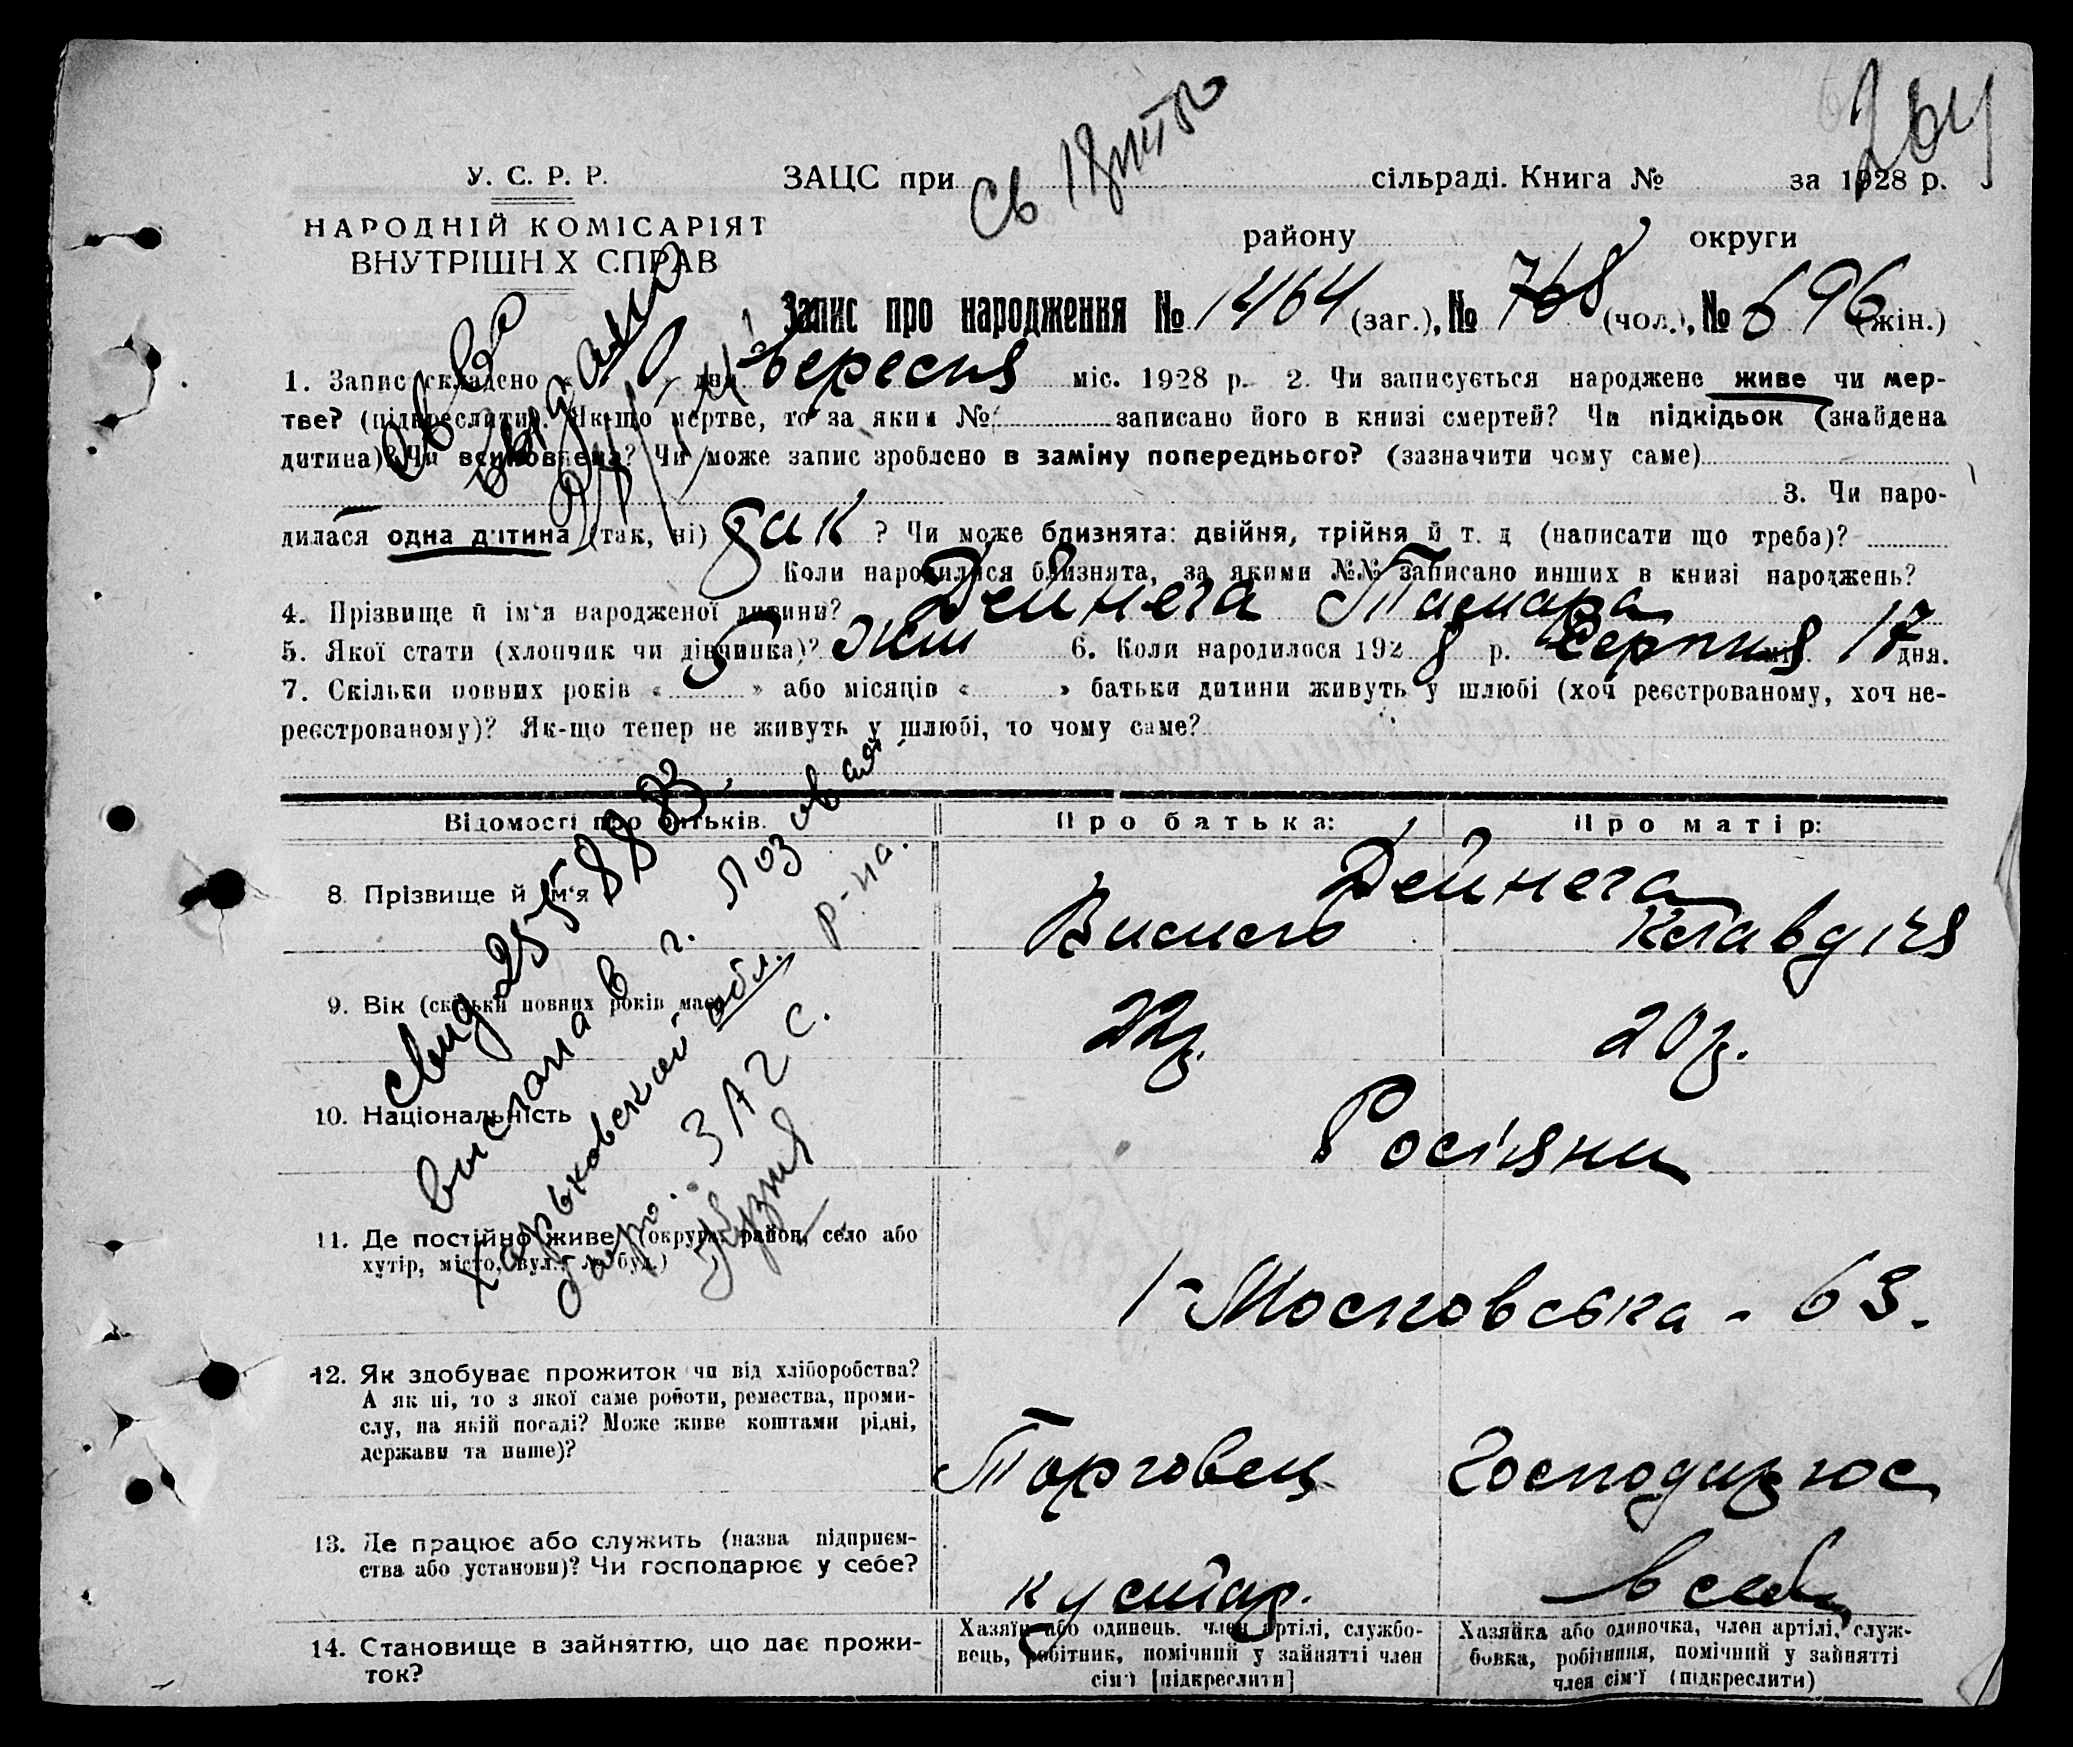 264
У. С. Р. Р.
НАРОДНІЙ КОМІСАРІЯТ
ВНУТРІШН Х СПРАВ
ЗАЦС при сільраді. Книга № за 1928 р.
району округи
Запис про народження № 1464 (заг.), № 768 (чол.), № 696 (жін.)
1. Запис складено « 10 » дня вересня міс. 1928 р. 2. Чи записується народжене живе чи мер-
тве? (підкреслити). Як-що мертве, то за яким № записано його в книзі смертей? Чи підкідьок (знайдена
дитина)? Чи всиновлена? Чи може запис зроблено в заміну попереднього? (зазначити чому саме)
3. Чи наро-
дилася одна дитина (так, ні) так ? Чи може близнята: двійня, трійня й т. д (написати що треба)?
Коли народилися близнята, за якими №№ записано инших в книзі народжень?
4. Прізвище й ім'я народженої дитини? Дейнега Тамара
5. Якої стати (хлопчик чи дівчинка)? жін 6. Коли народилося 1928 р. Серпня міс. 17 дня.
7. Скільки повних років « » або місяців « » батьки дитини живуть у шлюбі (хоч реєстрованому, хоч не-
реєстрованому)? Як-що тепер не живуть у шлюбі, то чому саме?
Відомості про батьків. Про батька: Про матір:
8. Прізвище й ім'я Дейнега
Клавдія
9. Вік (скільки повних років має) 22р. 20р.
10. Національність Росіяни
11. Де постійно живе (округа, район, село або
хутір, місто, вул., № буд.)
1-Московська - 63.
12. Як здобуває прожиток чи від хліборобства?
А як ні, то з якої саме роботи, ремества, проми-
слу, на якій посаді? Може живе коштами рідні,
держави та инше)?
Торговець Господарює
13. Де працює або служить (назва підприєм-
ства або установи)? Чи господарює у себе?
кустар. в себе
14. Становище в зайняттю, що дає прожи-
ток?
Хазяїн або одинець. член артілі, службо-
вець, робітник, помічний у зайнятті член
сім'ї [підкреслити]
Хазяйка або одиночка, член артілі, служ-
бовка, робітниця, помічний у зайнятті
член сім'ї (підкреслити)
свид 255883
выслана в г. Лозовая
Харьковской обл. р-на.
бюро ЗАГС.